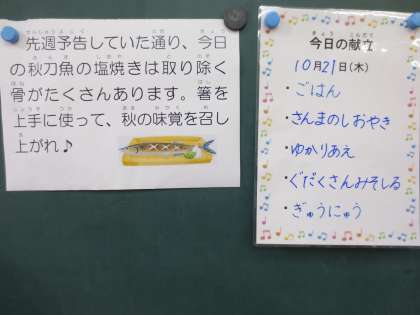 先週予告していた通り、今日
の秋刀魚の塩焼きは取り除く
骨がたくさんあります。箸を
上手に使って、秋の味覚を召し
上がれ♪
今日の献立
10月21日(木)
・ごはん
・さんまのしおやき
・ゆかりあえ
・ぐだくさんみそしる
・ぎゅうにゅう